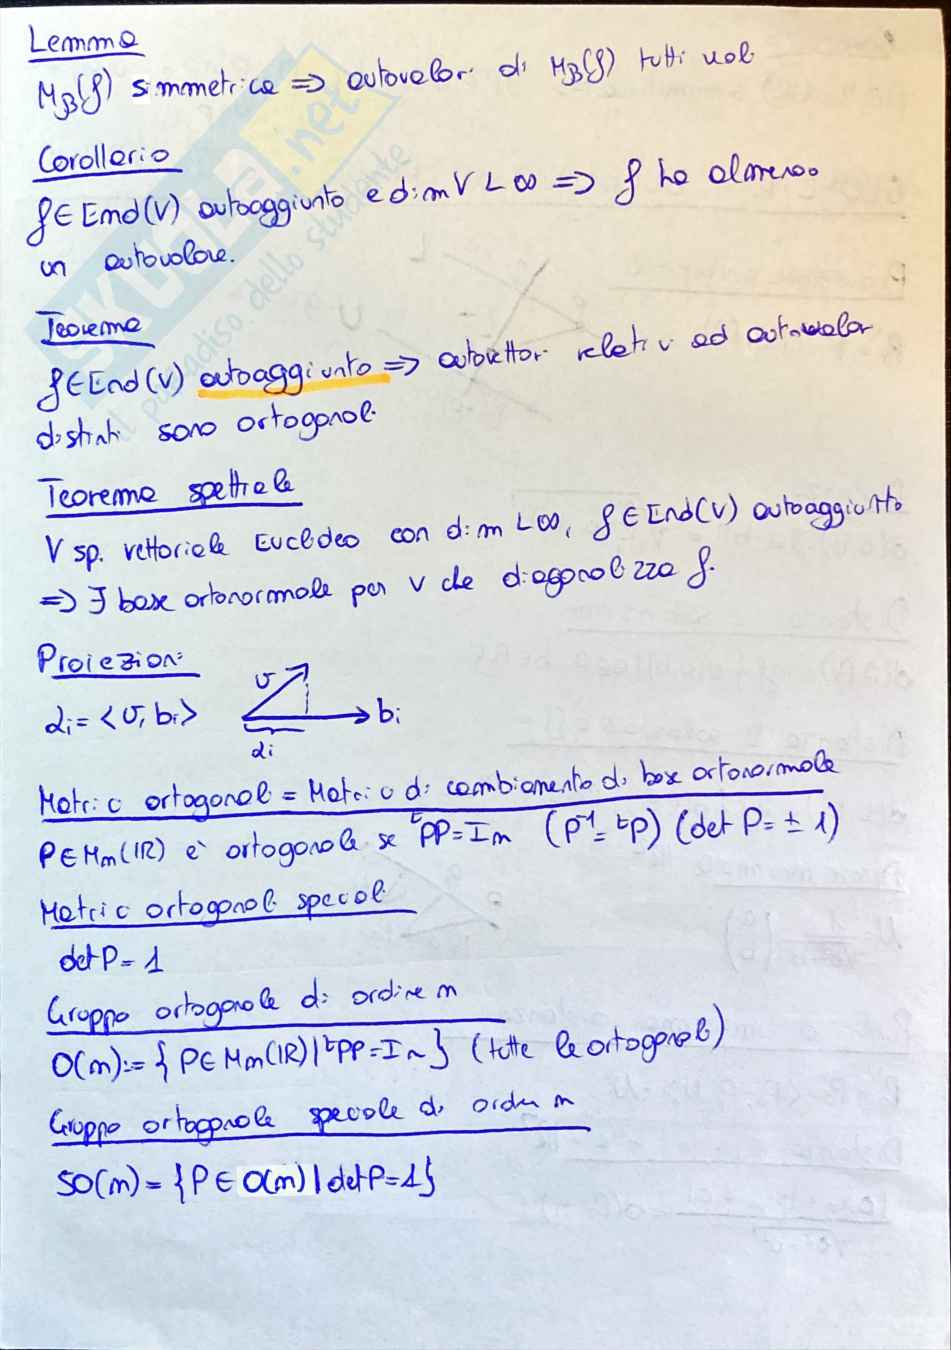 Lemma
M_B(f) simmetrica => autovalori di M_B(f) tutti reali
Corollario
f ∈ End(V) autoaggiunto e dim V < ∞ => f ha almeno
un autovalore.
Teorema
f ∈ End(V) autoaggiunto => autovettori relativi ad autovalori
distinti sono ortogonali
Teorema spettrale
V sp. vettoriale Euclideo con dim < ∞, f ∈ End(V) autoaggiunto
=> ∃ base ortonormale per V che diagonalizza f.
Proiezioni
αi = <v, bi>
v
bi
αi
Matrici ortogonali = Matrici di cambiamento di base ortonormale
P ∈ Mn(IR) è ortogonale se ᵗPP = In (P⁻¹ = ᵗP) (det P = ± 1)
Matrici ortogonali speciali
det P = 1
Gruppo ortogonale di ordine n
O(n) := { P ∈ Mn(IR) | ᵗPP = In } (tutte le ortogonali)
Gruppo ortogonale speciale di ordine n
SO(n) = { P ∈ O(n) | det P = 1 }
SKUOLA.net
il paradiso dello studente